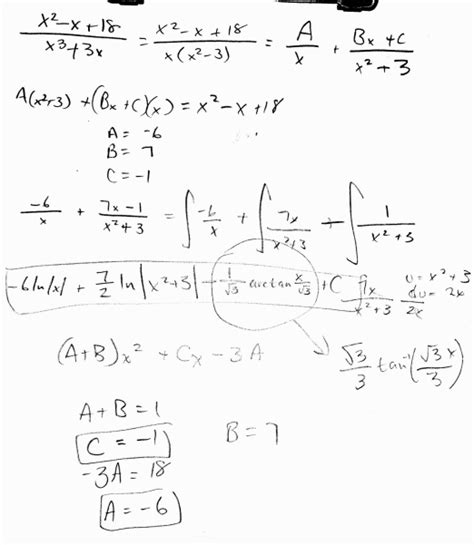 x²-x+18 / x³+3x = x²-x+18 / x(x²-3) = A/x + Bx+C / x²+3
A(x²+3) + (Bx+C)(x) = x²-x+18
A = -6
B = 7
C = -1
-6/x + 7x-1 / x²+3 = ∫ -6/x + ∫ 7x / x²+3 + ∫ 1 / x²+3
-6 ln|x| + 7/2 ln|x²+3| - 1/√3 arctan x/√3 + C
7x / x²+3
u = x²+3
du = 2x
2x
(A+B)x² + Cx - 3A
√3/3 tan⁻¹(√3x/3)
A+B = 1
C = -1
B = 7
-3A = 18
A = -6